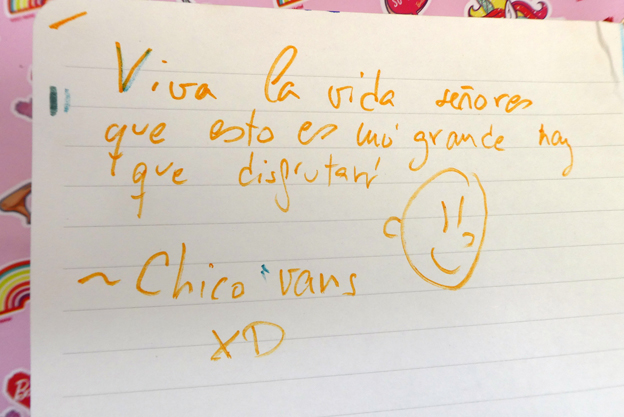 Viva la vida señores
que esto es mu grande hay
que disfrutarl
~ Chico vans
XD